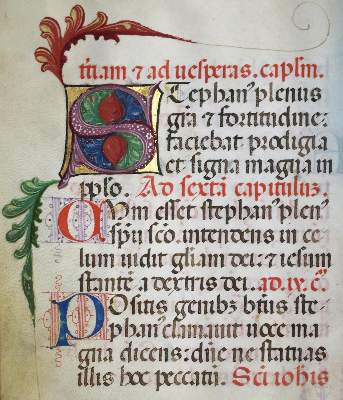 t̄iam & ad uesperas. caplm̄.
STephan' plenus
gr̄a & fortitudine:
faciebat prodigia
et signa magna in
pplo. Ad sexta capitulū.
CUm esset stephan' plen'
sp̄u sc̄o. intendens in ce
lum uidit gl̄iam dei: & iesum
stantē a dextris dei. ad. ix. c̄.
POsitis genibȝ b̄tus ste
phan' clamauit uoce ma
gna dicens: dn̄e ne statuas
illis hoc peccatū. Sc̄i iohis